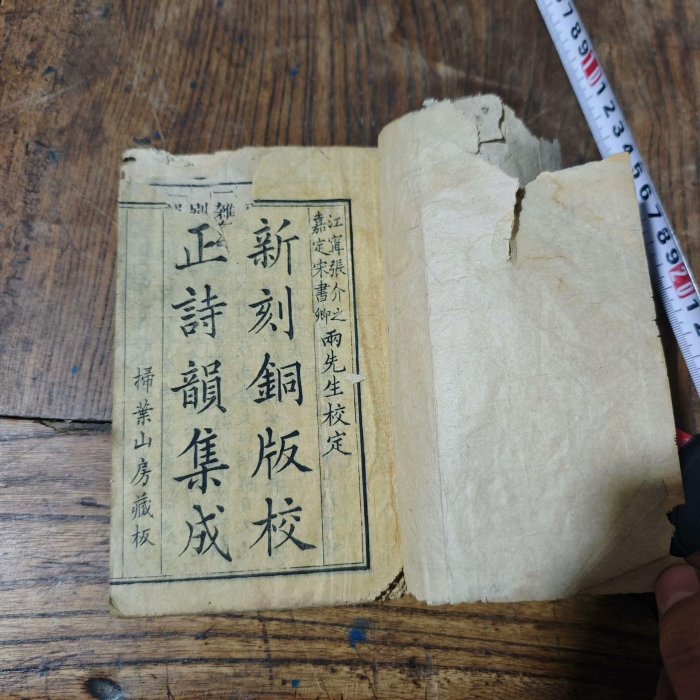 江寧張介之
嘉定宋書卿
兩先生校定
新刻銅版校
正詩韻集成
掃葉山房藏板
7 8 9 10 1 2 3 4 5 6 7 8 9 20 1 2 3